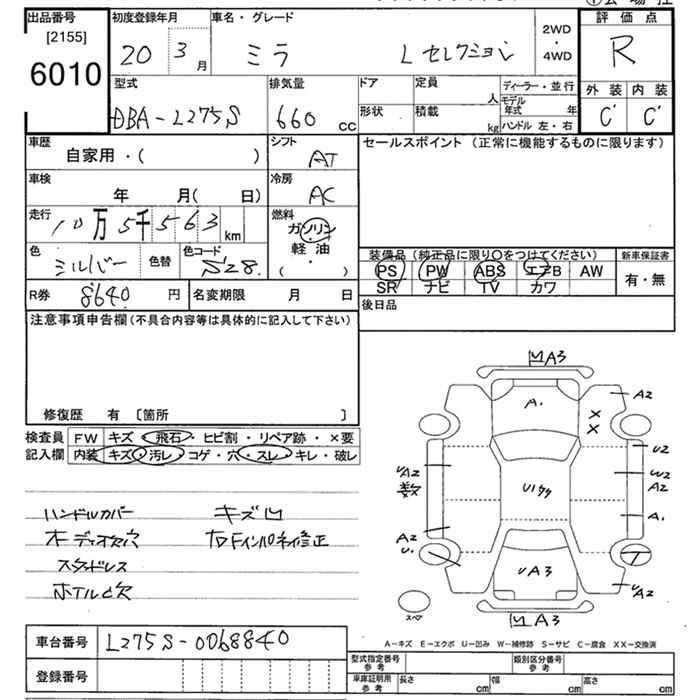 出品番号 初度登録年月 車名・グレード 評価点
[2155] 20 3月 ミラ L セレクション 2WD・4WD R
6010
型式 排気量 ドア 定員 人 ディーラー・並行 外装 内装
DBA-L275S 660cc 形状 積載 kg モデル年式 年 C' C'
ハンドル 左・右
車歴 シフト セールスポイント (正常に機能するものに限ります)
自家用・( ) AT
車検 冷房
年 月( 日) AC
走行 燃料
10万5千563km ガソリン
軽油
色 色替 色コード ・( )
シルバー S28.
装備品(純正品に限り〇をつけてください) 新車保証書
PS PW ABS エアB AW 有・無
SR ナビ TV カワ
R券 8640円 名変期限 月 日
後日品
注意事項申告欄(不具合内容等は具体的に記入して下さい)
修復歴 有 [箇所 ]
検査員 FW キズ・飛石・ヒビ割・リペア跡・×要
記入欄 内装 キズ・汚レ・コゲ・穴・スレ・キレ・破レ
ハンドルカバー キズ凹
オーディオ欠穴 右Fインパネイ修正
スタッドレス
ホイル凸欠
A3
A.
A2
X
X
U2
UA2
数
W2
A2
A.
A2
U.
UA3
UA2
スペア
A3
A-キズ E-エクボ U-凹み W-補修跡 S-サビ C-腐食 XX-交換済
車台番号 L275S-0068840
登録番号
型式指定番号 参考 類別区分番号 参考
車庫証明用 参考 長さ cm 幅 cm 高さ cm